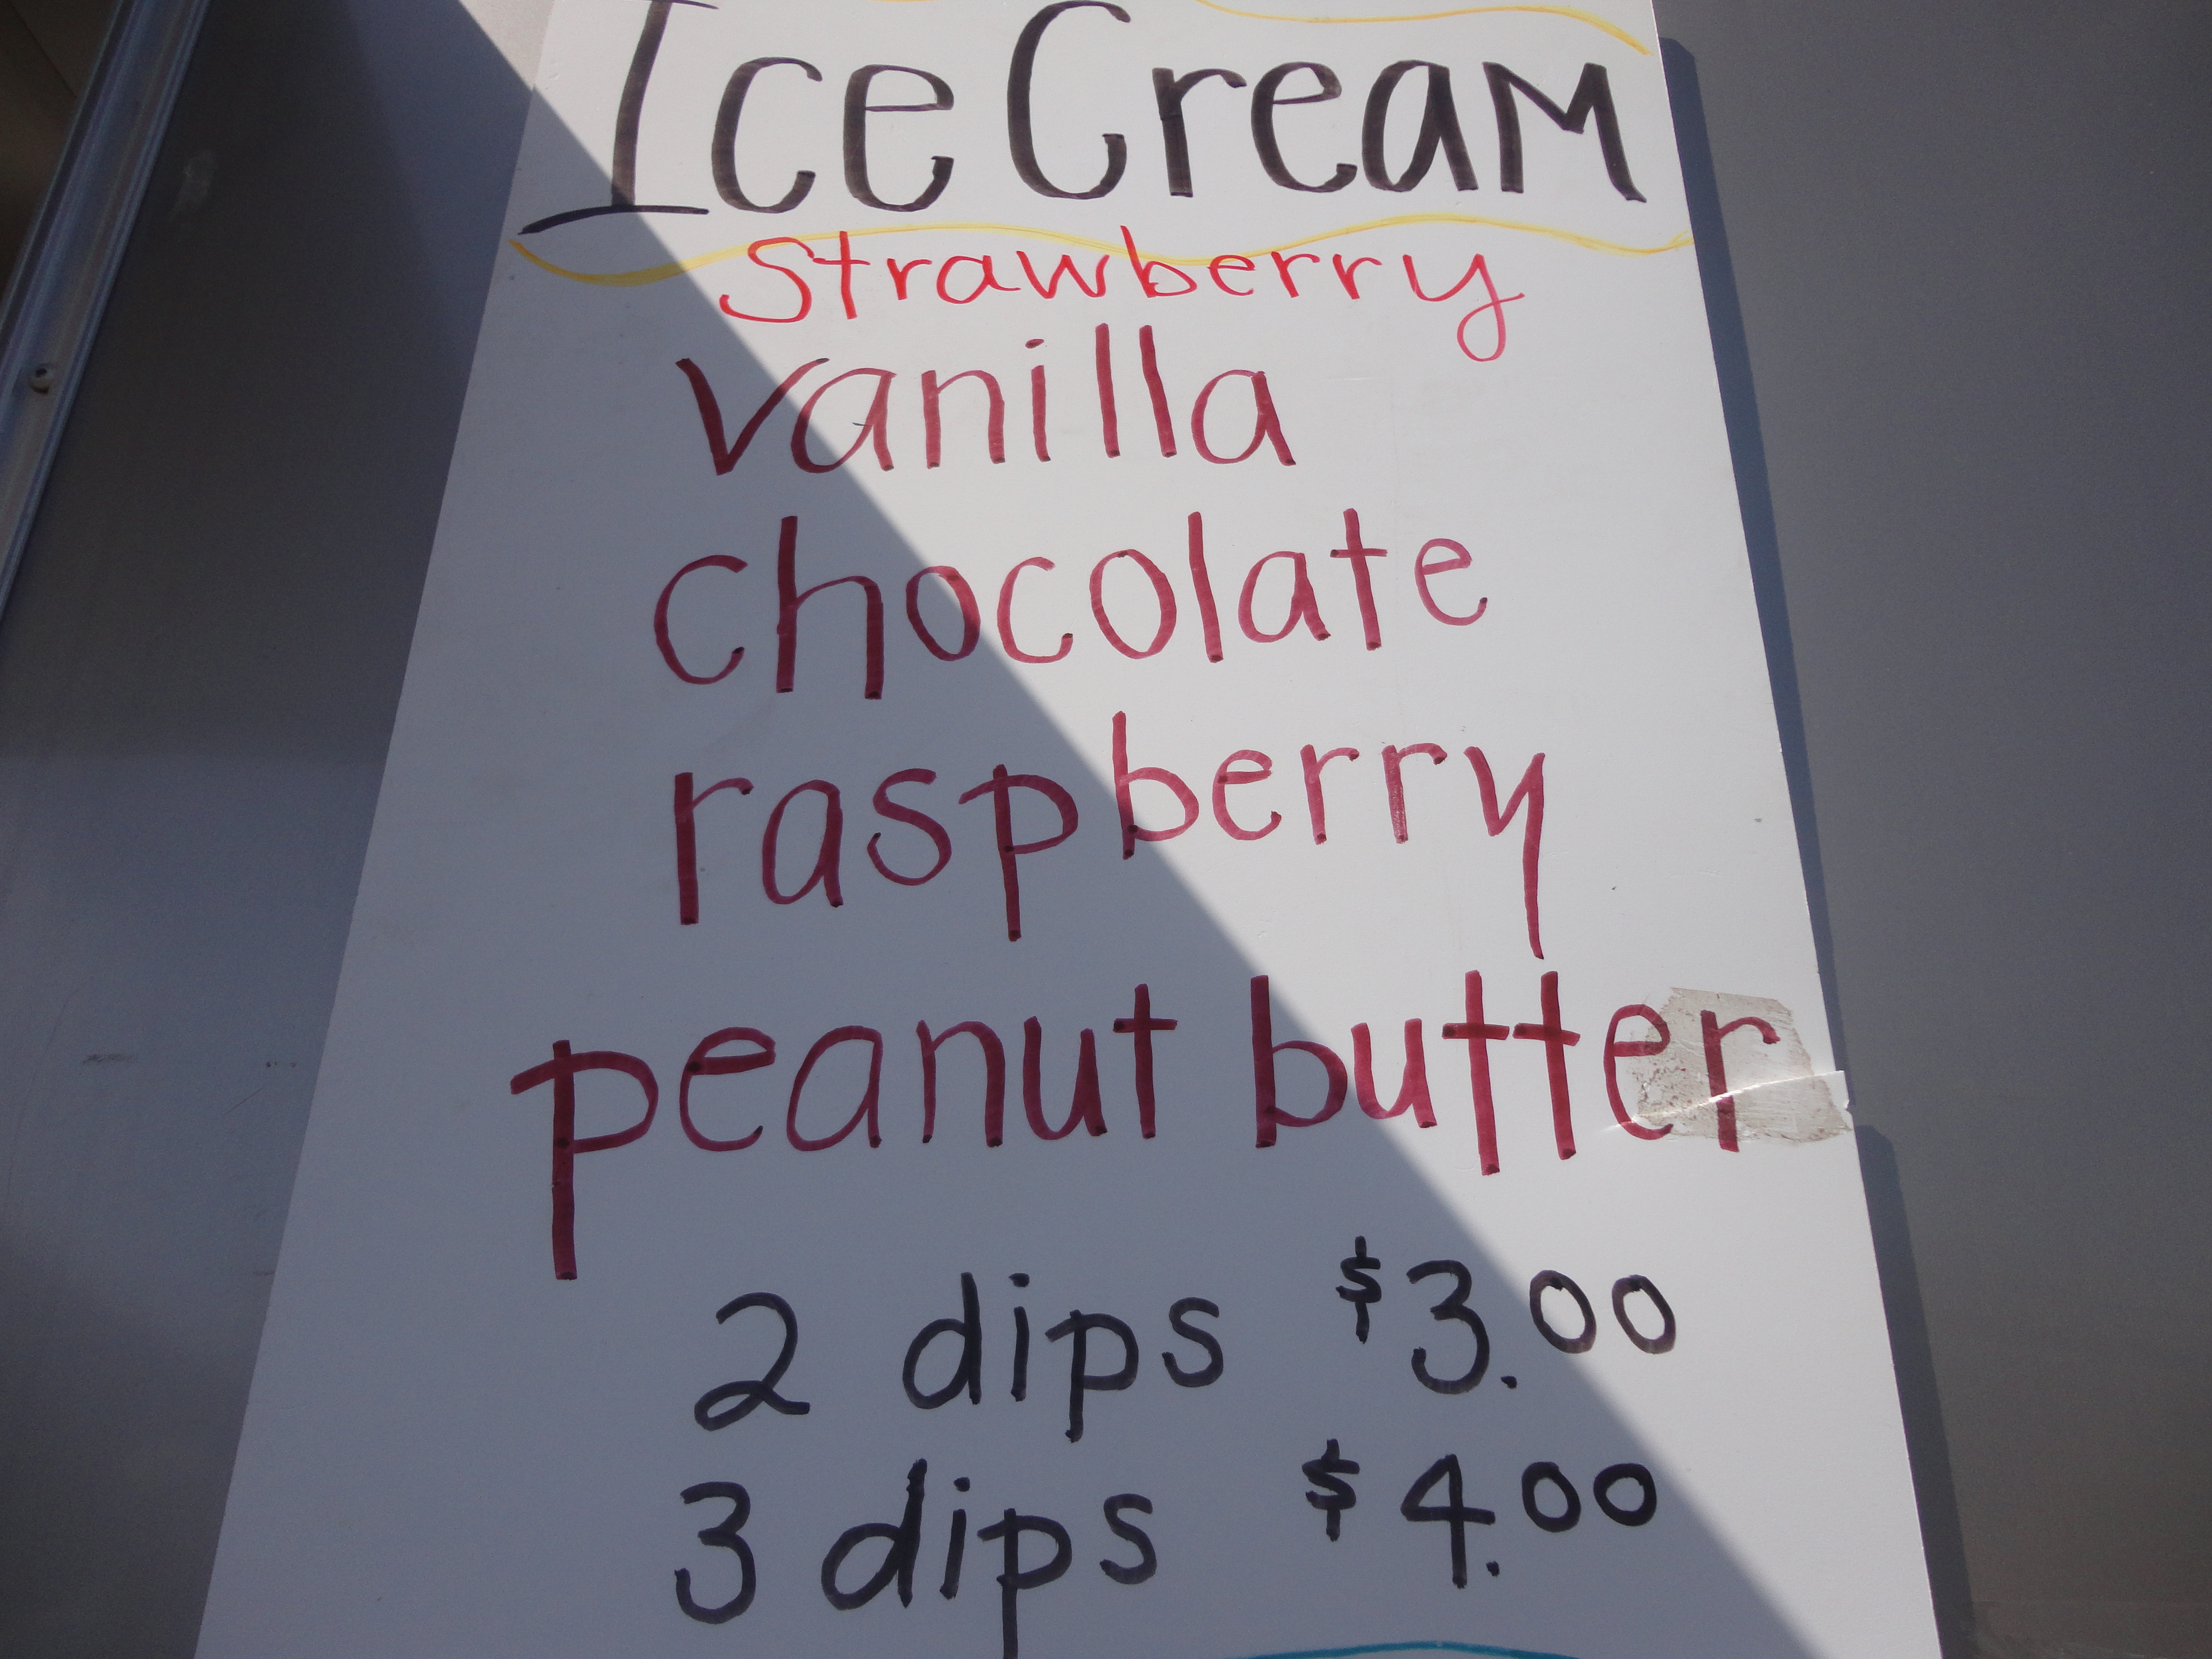 Ice Cream
Strawberry
vanilla
chocolate
raspberry
peanut butter
2 dips $3.00
3 dips $4.00